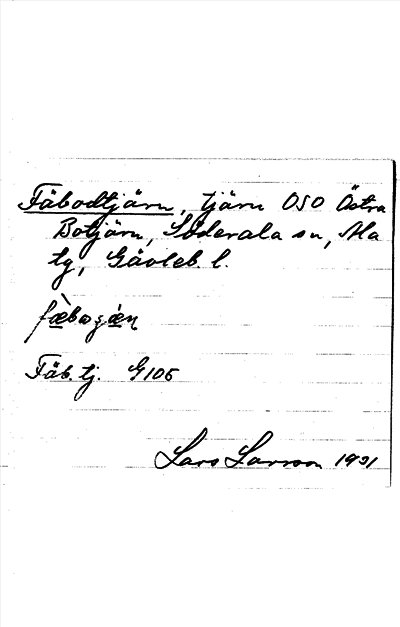 Fäbodtjärn, tjärn OSO Östra
Botjärn, Söderala sn, Ala
tg, Gävleb. l.
Fäb. tj. G105
Lars Larsson 1931